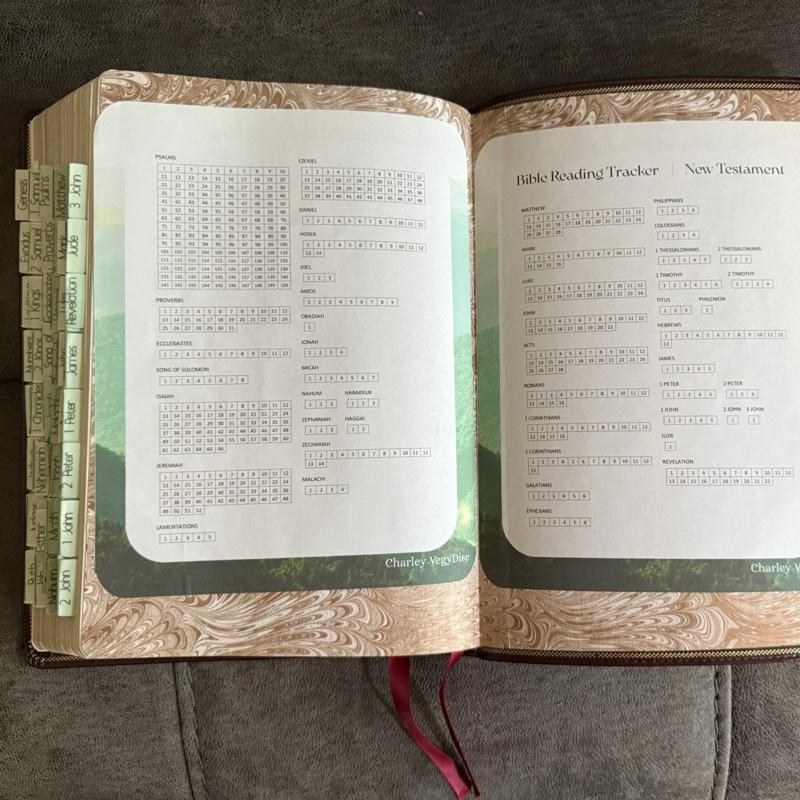 PSALMS
1 2 3 4 5 6 7 8 9 10
11 12 13 14 15 16 17 18 19 20
21 22 23 24 25 26 27 28 29 30
31 32 33 34 35 36 37 38 39 40
41 42 43 44 45 46 47 48 49 50
51 52 53 54 55 56 57 58 59 60
61 62 63 64 65 66 67 68 69 70
71 72 73 74 75 76 77 78 79 80
81 82 83 84 85 86 87 88 89 90
91 92 93 94 95 96 97 98 99 100
101 102 103 104 105 106 107 108 109 110
111 112 113 114 115 116 117 118 119 120
121 122 123 124 125 126 127 128 129 130
131 132 133 134 135 136 137 138 139 140
141 142 143 144 145 146 147 148 149 150
PROVERBS
1 2 3 4 5 6 7 8 9 10 11 12
13 14 15 16 17 18 19 20 21 22 23 24
25 26 27 28 29 30 31
ECCLESIASTES
1 2 3 4 5 6 7 8 9 10 11 12
SONG OF SOLOMON
1 2 3 4 5 6 7 8
ISAIAH
1 2 3 4 5 6 7 8 9 10 11 12
13 14 15 16 17 18 19 20 21 22 23 24
25 26 27 28 29 30 31 32 33 34 35 36
37 38 39 40 41 42 43 44 45 46 47 48
49 50 51 52 53 54 55 56 57 58 59 60
61 62 63 64 65 66
JEREMIAH
1 2 3 4 5 6 7 8 9 10 11 12
13 14 15 16 17 18 19 20 21 22 23 24
25 26 27 28 29 30 31 32 33 34 35 36
37 38 39 40 41 42 43 44 45 46 47 48
49 50 51 52
LAMENTATIONS
1 2 3 4 5
EZEKIEL
1 2 3 4 5 6 7 8 9 10 11 12
13 14 15 16 17 18 19 20 21 22 23 24
25 26 27 28 29 30 31 32 33 34 35 36
37 38 39 40 41 42 43 44 45 46 47 48
DANIEL
1 2 3 4 5 6 7 8 9 10 11 12
HOSEA
1 2 3 4 5 6 7 8 9 10 11 12
13 14
JOEL
1 2 3
AMOS
1 2 3 4 5 6 7 8 9
OBADIAH
1
JONAH
1 2 3 4
MICAH
1 2 3 4 5 6 7
NAHUM HABAKKUK
1 2 3 1 2 3
ZEPHANIAH HAGGAI
1 2 3 1 2
ZECHARIAH
1 2 3 4 5 6 7 8 9 10 11 12
13 14
MALACHI
1 2 3 4
Charley VegyDise
Bible Reading Tracker | New Testament
MATTHEW
1 2 3 4 5 6 7 8 9 10 11 12
13 14 15 16 17 18 19 20 21 22 23 24
25 26 27 28
MARK
1 2 3 4 5 6 7 8 9 10 11 12
13 14 15 16
LUKE
1 2 3 4 5 6 7 8 9 10 11 12
13 14 15 16 17 18 19 20 21 22 23 24
JOHN
1 2 3 4 5 6 7 8 9 10 11 12
13 14 15 16 17 18 19 20 21
ACTS
1 2 3 4 5 6 7 8 9 10 11 12
13 14 15 16 17 18 19 20 21 22 23 24
25 26 27 28
ROMANS
1 2 3 4 5 6 7 8 9 10 11 12
13 14 15 16
1 CORINTHIANS
1 2 3 4 5 6 7 8 9 10 11 12
13 14 15 16
2 CORINTHIANS
1 2 3 4 5 6 7 8 9 10 11 12
13
GALATIANS
1 2 3 4 5 6
EPHESIANS
1 2 3 4 5 6
PHILIPPIANS
1 2 3 4
COLOSSIANS
1 2 3 4
1 THESSALONIANS 2 THESSALONIANS
1 2 3 4 5 1 2 3
1 TIMOTHY 2 TIMOTHY
1 2 3 4 5 6 1 2 3 4
TITUS PHILEMON
1 2 3 1
HEBREWS
1 2 3 4 5 6 7 8 9 10 11 12
13
JAMES
1 2 3 4 5
1 PETER 2 PETER
1 2 3 4 5 1 2 3
1 JOHN 2 JOHN 3 JOHN
1 2 3 4 5 1 1
JUDE
1
REVELATION
1 2 3 4 5 6 7 8 9 10 11 12
13 14 15 16 17 18 19 20 21 22
Charley V
Genesis
1 Samuel
Psalms
Matthew
3 John
Exodus
2 Samuel
Proverbs
Mark
Jude
Kings
Ecclesiastes
Revelation
Song of
James
1 Chronicles
1 Peter
Nehemiah
2 Peter
Esther
Micah
1 John
Ruth
Nahum
2 John